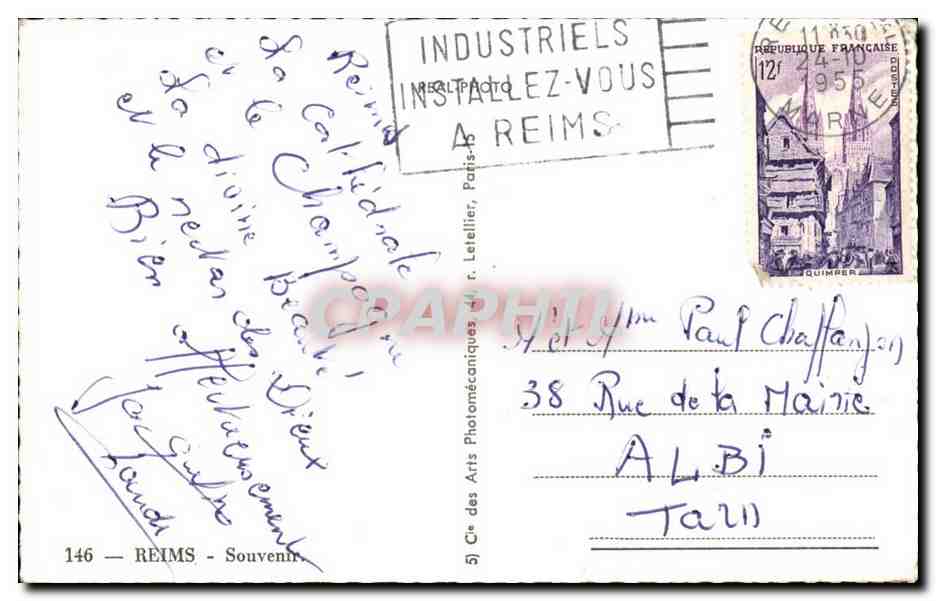 INDUSTRIELS
INSTALLEZ-VOUS
A REIMS
REAL-PHOTO
11 H30
24-10
1955
MARNE
REPUBLIQUE FRANÇAISE
12F
POSTES
QUIMPER
Reims
La Cathédrale
et le Champagne
La divine Beauté,
et le nectar des Dieux
Bien affectueusement
Jacqueline
CPAPHIL
5) Cie des Arts Photomécaniques, r. Letellier, Paris-15
Mr et Mme Paul Chaffanjon
38 Rue de la Mairie
ALBI
TARN
146 — REIMS - Souvenir.